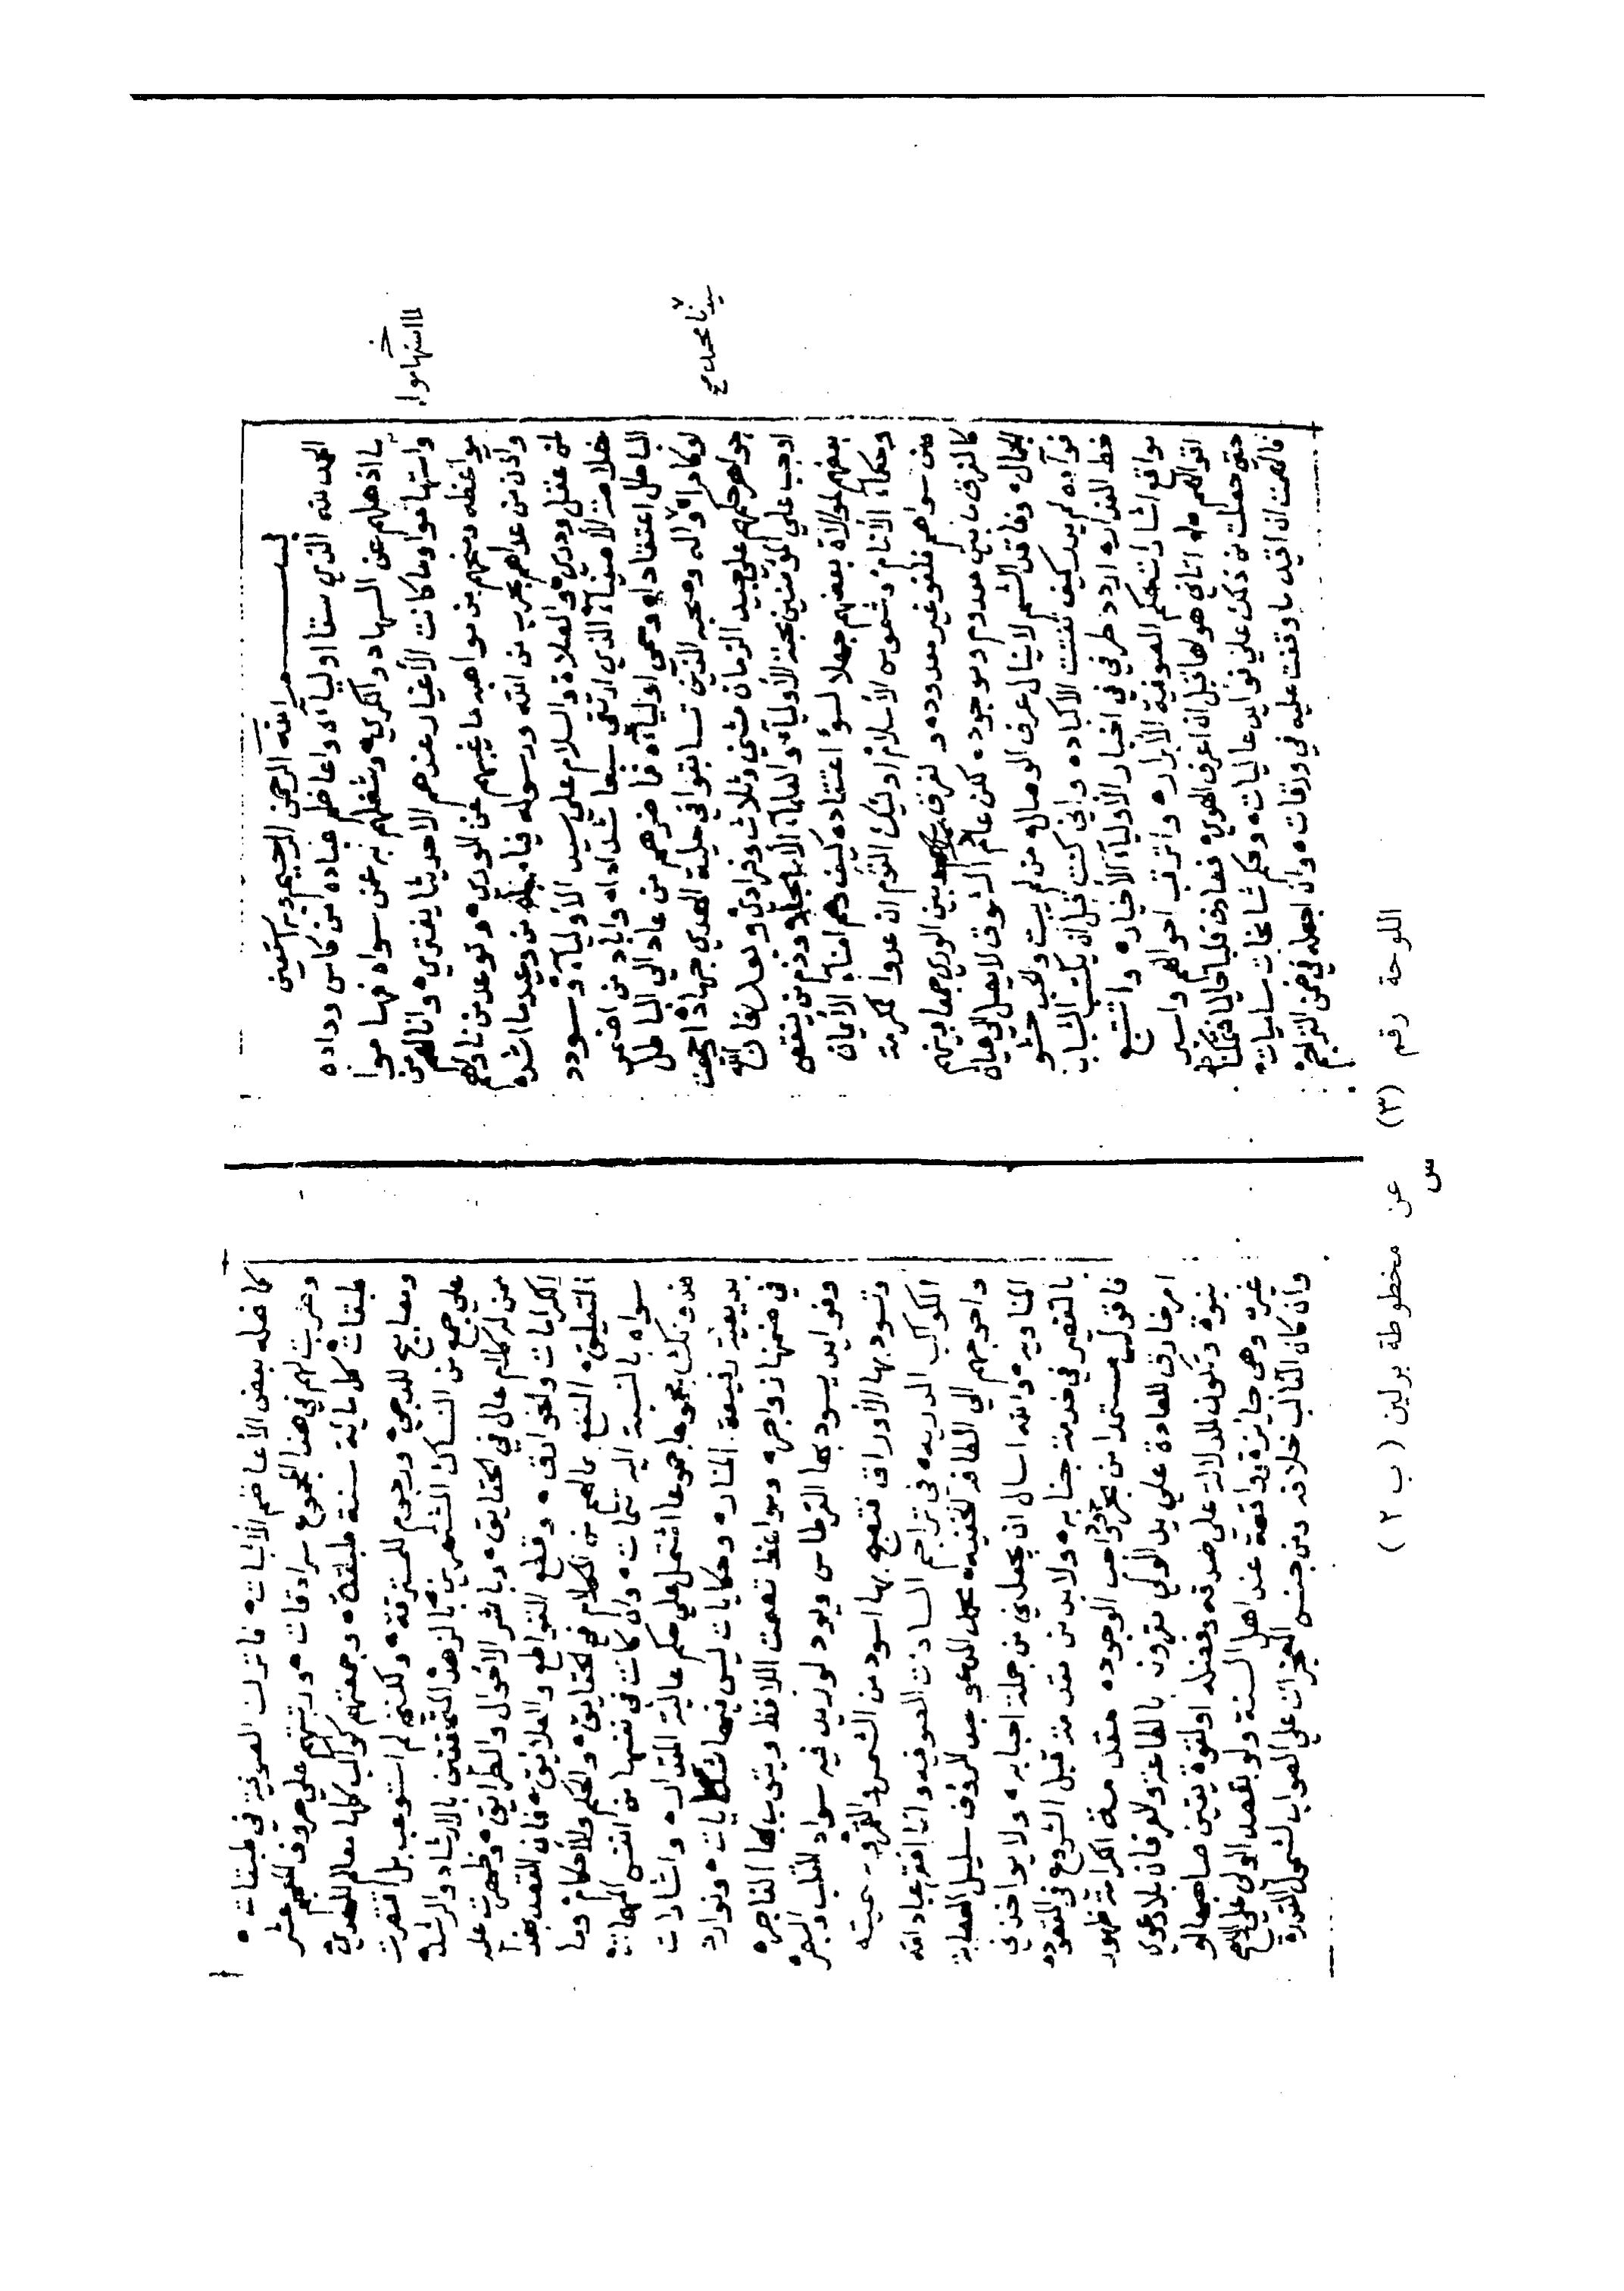 بسم الله الرحمن الرحيم وبه استعين
الحمد لله الذي سقا اولياءه واعاظم عباده من كاس وداده
ما اذهلهم عن السهاد والكرى وشغلهم به عن سواه فهاموا
واستهاموا وما كانت الأغيار عندهم الا حديثا يفترى وانالهم من
مواهبه ما غيبهم عن الورى
واذن من عاداهم بحرب من الله ورسوله
لمن عقل ودرى والصلاة والسلام على سيد الأولياء وسودد
خلاصة الأصفياء الذي ارتقى سبعا شدادا واباد من اضمر
الباطل اعتقادا وحمى اولياءه فما ضرهم من عاد الى الباطل
لو كادا وآله وصحبه الذين تسابقوا في حلبة الهدى جهادا
جواهر حكمهم على جيد الزمان مثنى وثلاث وفرادى وبعد فان الله
اوجب على المؤمنين محبة الأولياء والعلماء
بعضهم لموالاة بعضهم جهلا لسؤ اعتقاده كيف وهم امناء الأعيان
وحكماء الأنام وشموس الأسلام اوليك القوم ان عدوا لمكرمة
من سواهم فلغو غير معدود والفرق بين الورى جمعا وبينهم
كالفرق ما بين معدوم وموجود لكن عادم الشوق لا يصل الى حيان
الجمال وفاقد الشم لا ينال عرف الوصال من لم يبت والحب حشو
فؤاده لم يدر كيف تفتت الأكباد واني كنت قبل ان يكتب الشباب
خط العذار اردد طرفي في اخبار الأولياء الأخيار واتتبع
مواقع اشارات حكم الصوفية الأبرار واترقب احوالهم واسير
اقوالهم اتاني هواها قبل ان اعرف الهوى فصادف قلبا خاليا فتمكنا
حتى حصلت من ذلك على فوايد عاليات وحكم شامخات ساميات
فالهمت ان اقيد ما وقفت عليه في ورقات وان اجعله في ضمن التراجم
استهاموا
سيدنا محمد صح
كما فعله بعض الأعاظم الأثبات فانزلت الصوفية في طبقات
وضربت لهم في هذا المجموع سرادقات ورتبتهم على حروف المعجم عشر
طبقات كل ماية سنة طبقة وجمعتهم كواكب كلها معالم للهدى
ومصابيح للدجى ورجوم للمسترقة ولكني لم استوعب بل اقتصرت
على جمع من النساك المشتهرين بالزهد المتصفين بالارشاد والرشد
من له كلام عالي في الحقايق وباشر الأحوال والطرايق وظهرت عليه
الكرامات والخوارق وقطع القواطع والعلايق فان القصد بهذا
التعليق النفع بمالهم من الكلام في الحقايق والحكم والأحكام وما
سواه بالنسبة اليه تتمات وان كانت في نفسها من انفس المهمات
فدونك مجموعا جموعا اشتمل على حكم عالية المقدار واشارات
بديعية رفيعة المنار وحكايات ليس فيها شكايات ونوادر
في ضمنها زواجر ومواعظ تصمت اللافظ ويتوب بها الفاجر
وفوايد يسود بها القرطاس ويود لو زيد فيه سواد القلب والبصر
وتسود بها الأوراق فتصبح بها اسود من الشمس والقمر وسميته
الكواكب الدرية في تراجم السادة الصوفية وانا افقر عباد الله
واحوجهم الى الطافه الخفية محمد المدعو عبد الرؤف سليل العصابة
المناوية والله اسال ان يجعلني من جملة احبابه ولا يواخذني
بالتقصير في خدمة جنابه ولا بد من مقدمة قبل الشروع في المقصود
فاقول مستمدا من بحر واهب الوجود مقدمة الكرامة ظهور
امر خارق للعادة على يد الولي مقرون بالطاعة والعرفان بلا دعوى
نبوة وتكون للدلالة على صدقه وفضله او لقوة يقين صاحبها او
غيره وهي جايزة وواقعة عند اهل السنة ولو بقصد الولي على الاصح
وان كان الغالب خلافه ومن جنس المعجزات على الصواب لشمول القدرة
اللوحة رقم (٣) عن مخطوطة برلين (ب ٢)
س